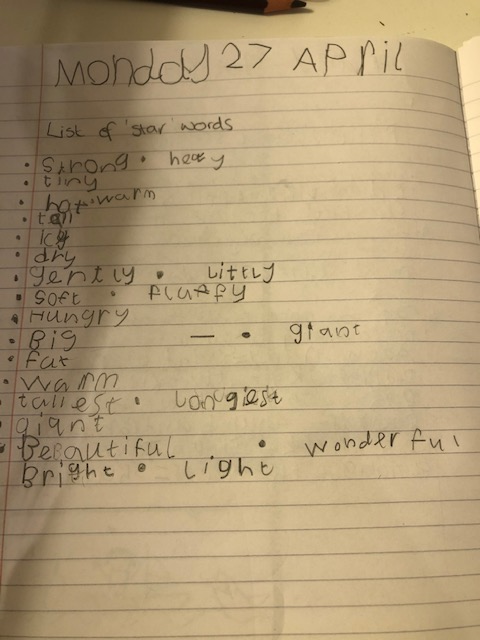 Monday 27 April
List of 'star' words
• Strong • heavy
• tiny
• hot • warm
• tall
• icy
• dry
• gently • Littly
• Soft • fluffy
• Hungry
• Big — • giant
• fat
• warm
• tallest • Longiest
• giant
• Beautiful • wonderful
Bright • Light